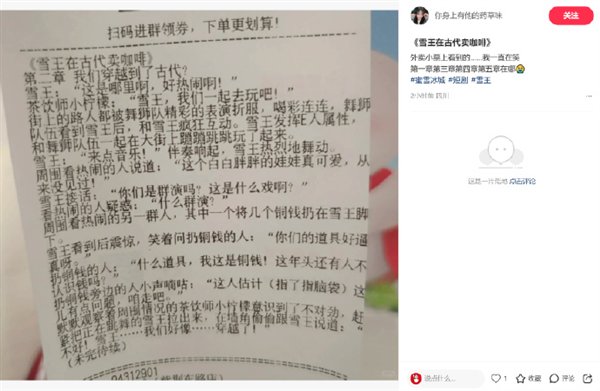 扫码进群领券，下单更划算！
《雪王在古代卖咖啡》
第二章 我们穿越到了古代？
雪王：“这是哪里啊，好热闹啊！”
茶饮师小柠檬：“雪王，我们一起去玩吧！”
街上的路人都被舞狮队精彩的表演折服，喝彩连连，舞狮
队伍看到雪王后，和雪王疯狂互动。雪王发挥E人属性，
和舞狮队伍一起在大街上蹦蹦跳跳玩了起来。
雪王：“来点音乐！”伴奏响起，雪王热烈地舞动。
周围看热闹的人说道：“这个白白胖胖的娃娃真可爱，从
来没见过！”
雪王接话：“你们是群演吗？这是什么戏啊？”
看热闹的人疑惑：“什么群演？”
周围看热闹的另一群人，其中一个将几个铜钱扔在雪王脚
下。
雪王看到后震惊，笑着问扔铜钱的人：“你们的道具好逼
真呀。”
扔铜钱的人：“什么道具，我这是铜钱！这年头还有人不
认识钱吗？”
扔铜钱旁边的人小声嘀咕：“这人估计（指了指脑袋）这
儿有点问题，咱走吧。”
默默观察着周围情况的茶饮师小柠檬意识到了不对劲，赶
紧把正在跳舞的雪王拉出来，在墙角偷偷跟雪王说道：“
不好！雪王……我们好像……穿越了！”
（未完待续）
04312901
你身上有他的药草味
关注
《雪王在古代卖咖啡》
外卖小票上看到的……我一直在笑
第一章第三章第四章第五章在哪
#蜜雪冰城 #短剧 #雪王
2小时前 四川
这是一片荒地 点击评论
说点什么...
1
收藏
评论
分享